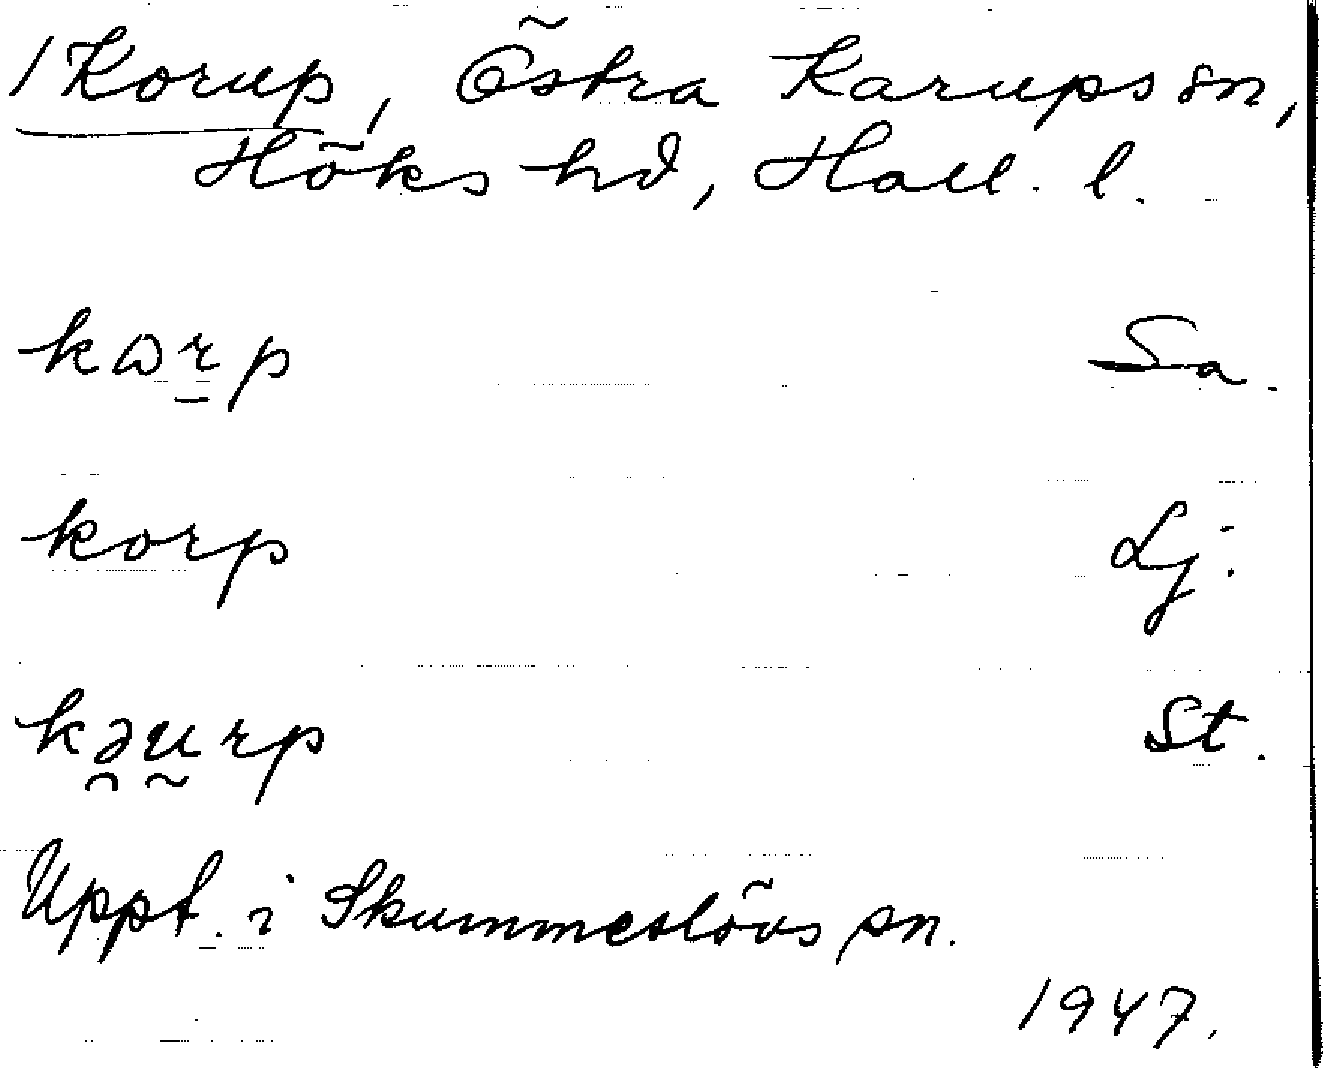 /Korup, Östra Karups sn,
Höks hd, Hall. l.
kɷr̲p Sa.
korp Lj:
kə̯ṵrp St.
Uppt. i Skummeslövs sn.
1947.